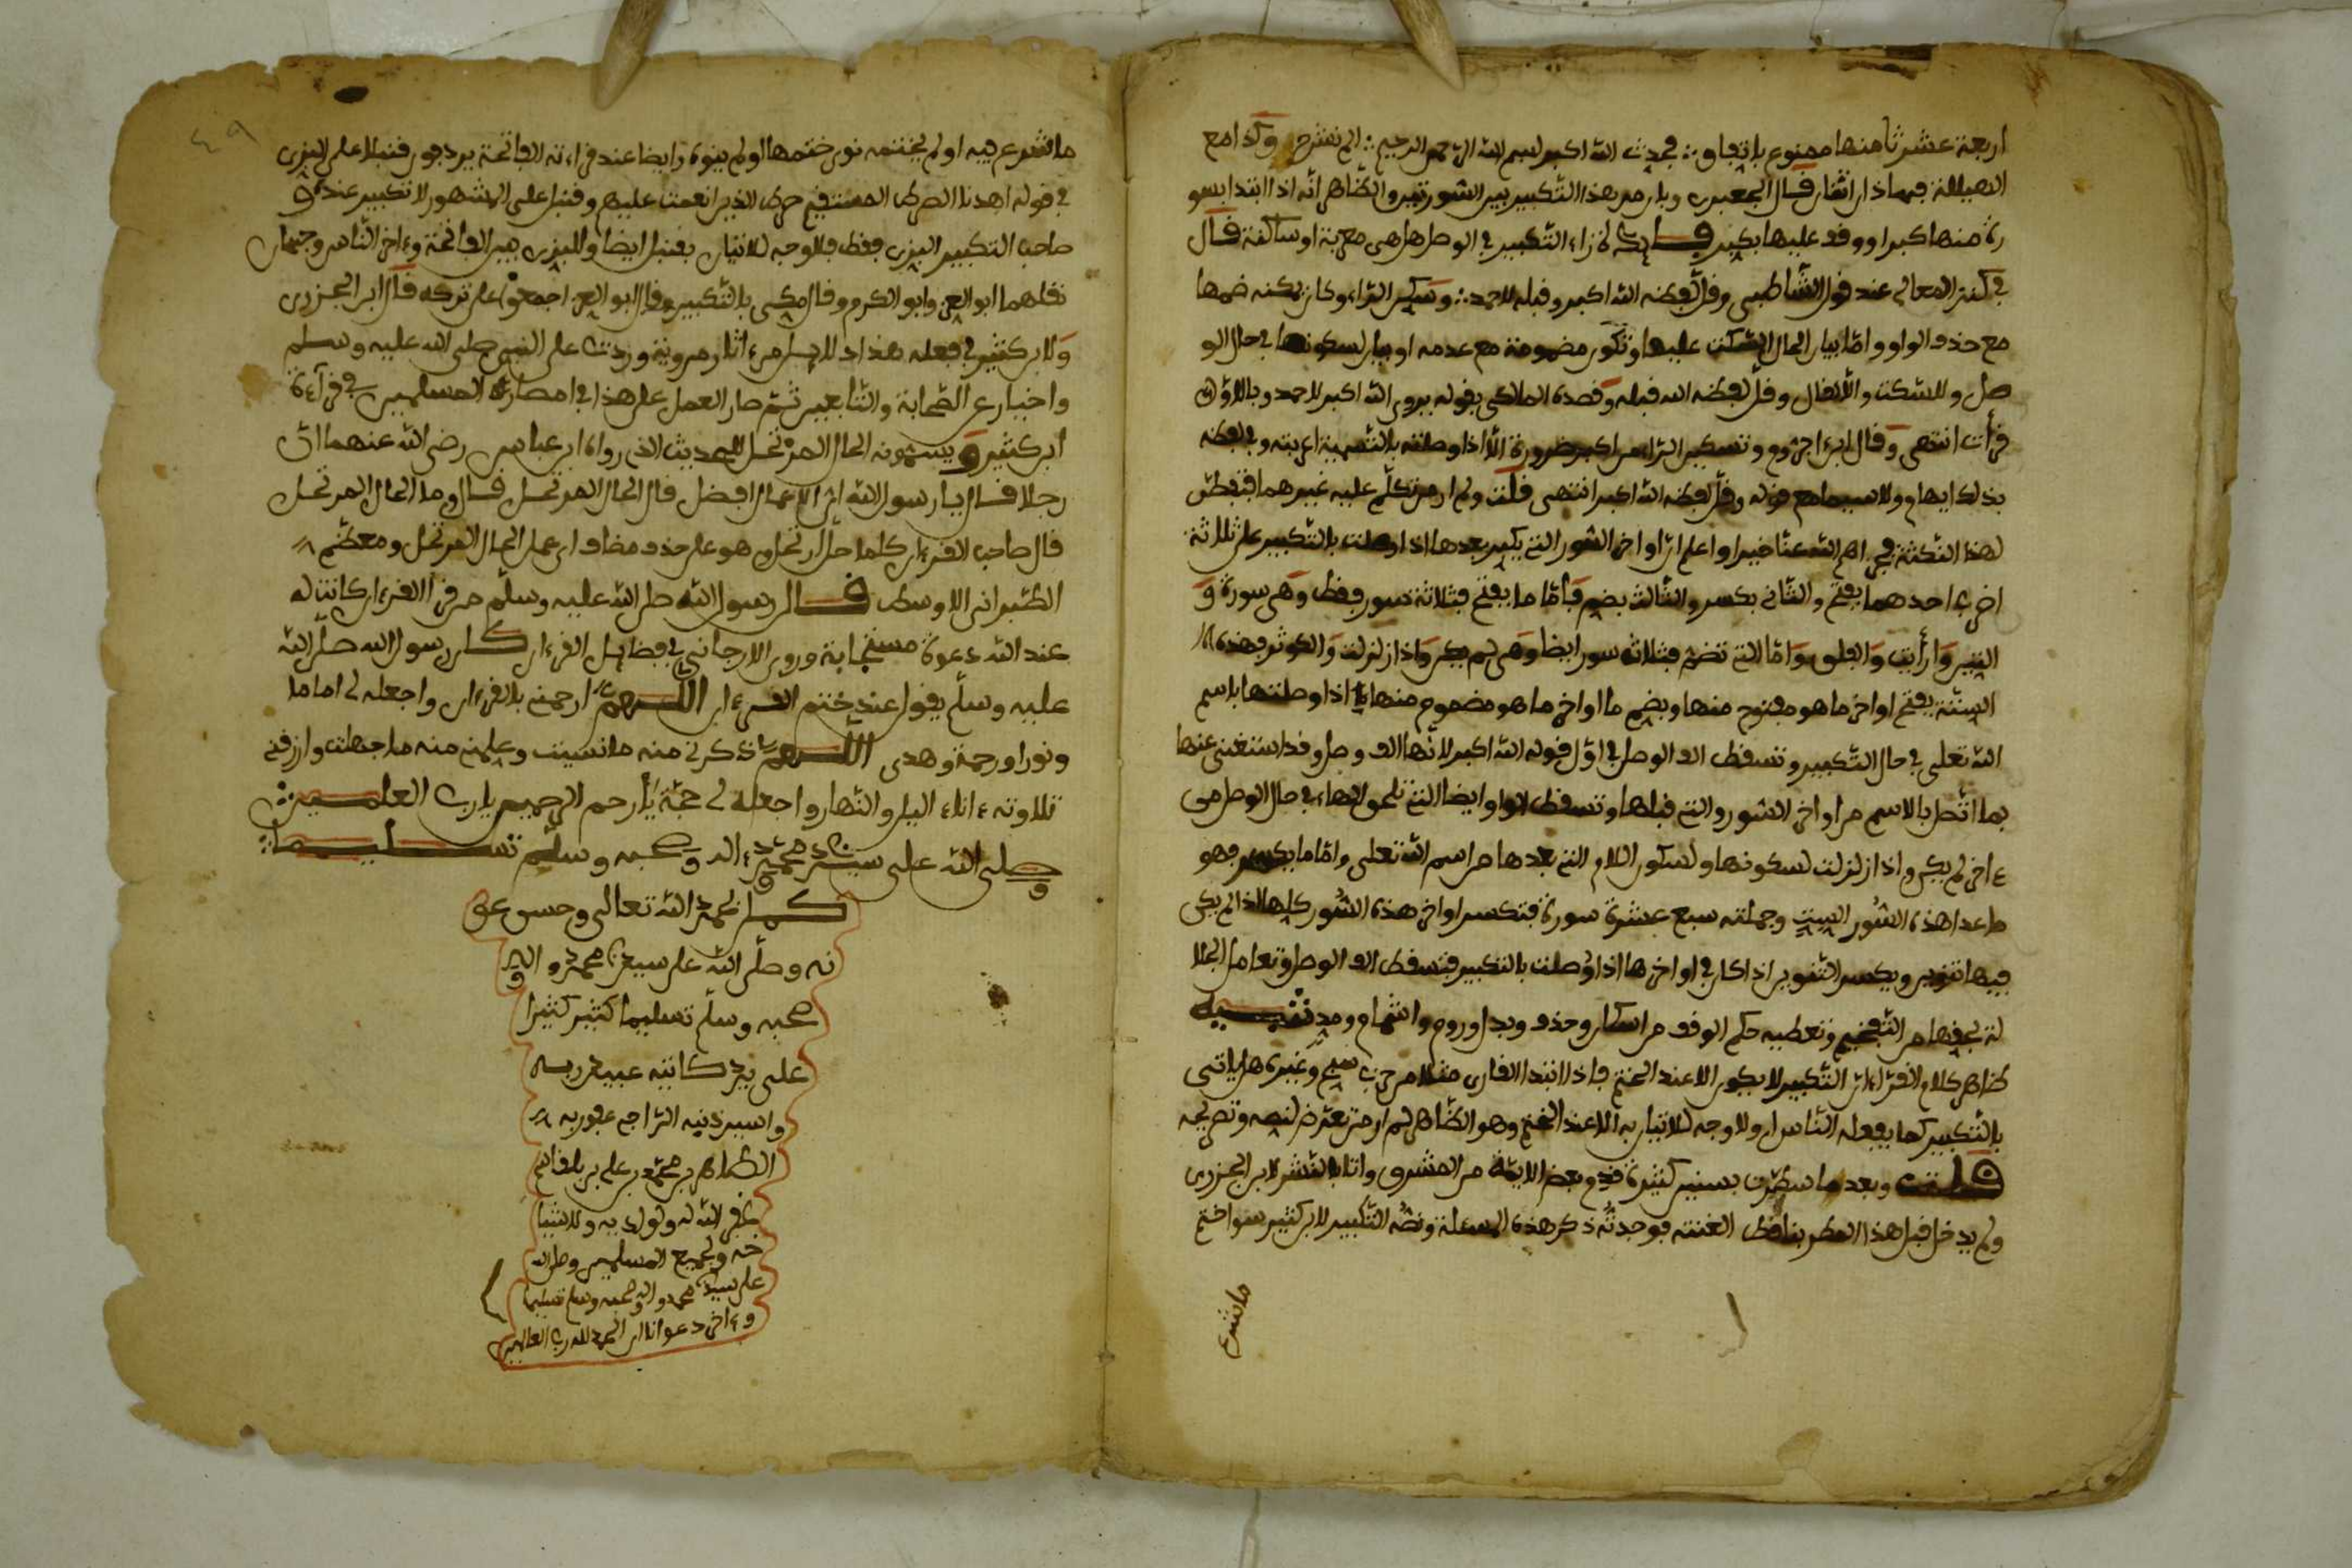 اربعة عشر ثامنها ممنوع باتفاق فحدث الله اكبر بسم الله الرحمن الرحيم الم نشرح وكذا مع
الهيللة فهما ذان اثنان قال الجعبري وبان من هذا التكبير بين السورتين والظاهر انه اذا ابتدا بسو
رة منها كبر او وقف عليها يكبر راء التكبير في الوصل هل هي معربة او ساكنة قال
في كنز المعاني عند قول الشاطبي وقل لفظه الله اكبر وقبله لاحمد وسكن الراء وكان يمكنه ضمها
مع حذف الواو واما بيان الحال عليها وتكون مضمومة مع عدمه او بيان لسكونها في حال الو
صل وللسكت والانفال وقل لفظه الله قبله وقصده المالكي بقوله يروى الله اكبر لاحمد وبالاول
قرأت انتهى وقال ابن اجروم وتسكين الراء من اكبر ضرورة الا اذا وصلته بالتسمية وفي لفظه
بذلك ايهام ولا سيما مع قوله وقل لفظه الله اكبر انتهى قلت ولم ار من تكلم عليه غيرهما فتفطن
لهذه النكتة الله عنا خيرا واعلم ان اواخر السور التي يكبر بعدها اذا وصلت بالتكبير على ثلاثة
اضرب احدهما يفتح والثاني يكسر والثالث يضم فاما ما يفتح فثلاثة سور فقط وهي سورة و
التين وارأيت والفلق واما التي تضم فثلاثة سور ايضا وهي لم يكن واذا زلزلت والكوثر فهذه
الستة يفتح اواخر ما هو مفتوح منها ويضم ما اواخر ما هو مضموم منها اذا وصلتها باسم
الله تعلى في حال التكبير وتسقط الف الوصل في اول قوله الله اكبر لانها الف وصل وقد استغنى عنها
بما اتصل بالاسم من اواخر السور والتي قبلها وتسقط الواو ايضا التي تلحق الهاء في حال الوصل من
ءاخر لم يكن واذا زلزلت لسكونها ولسكون اللام التي بعدها من اسم الله تعلى واما ما يكسر فهو
ما عدا هذه السور الست وجملته سبع عشرة سورة فتكسر اواخر هذه السور كلها الذا لم يكن
فيها تنوين ويكسر التنوين اذا كان في اواخرها اذا وصلت بالتكبير فتسقط الف الوصل وتعامل الجلا
لة بحقها من التفخيم وتعطيه حكم الوقف من اسكان وحذف وبدل وروم واشمام ومد تنبيه
ظاهر كلام القراء ان التكبير لا يكون الا عند الختم فاذا ابتدا القارئ مثلا من حزب سبح وغيره هل ياتي
بالتكبير كما يفعله الناس ام ولا وجه للاتيان به الا عند الختم وهو الظاهر لم ار من تعرض لنصه وتصريحه
قلت وبعد ما سطرت بسنين كثيرة قدم بعض الايمة من المشرق واتا بالنشر لابن الجزري
ولم يدخل قبل هذا القطر بنا قط اغتنته فوجدته ذكر هذه المسئلة ونصه التكبير لابن كثير سواء ختم
ما شرع
ما شرع فيه او لم يختمه نوى ختمها او لم ينوه وايضا عند قراءته الفاتحة يردفون قنبلا على البزي
في قوله اهدنا الصرط المستقيم صرط الذين انعمت عليهم وقنبل على المشهور لا تكبير عنده و
صاحب التكبير البزي فقط فلا وجه للاتيان بقنبل ايضا وللبزي بين الفاتحة وءاخر الناس وجهان
نقلهما ابو العز وابو الكرم وقال مكي بالتكبير وقال ابو العز اجمعوا على تركه قال ابن الجزري
ولابن كثير في فعله هذا دلايل من ءاثار مروية وردت على النبي صلى الله عليه وسلم
واخبار عن الصحابة والتابعين ثم صار العمل على هذا في امصار المسلمين في قرآءة
ابن كثير ويسمونه الحال المرتحل للحديث الذي رواه ابن عباس رضي الله عنهما ان
رجلا قال يا رسول الله اي الاعمال افضل قال الحال المرتحل قال وما الحال المرتحل
قال صاحب القرءان كلما حل ارتحل هو على حذف مضاف اي عمل الحال المرتحل ومعظم
الطبراني الاوسط قال رسول الله صلى الله عليه وسلم من قرا القرءان كانت له
عند الله دعوة مستجابة وروى الارجاني في فضايل القرءان كان رسول الله صلى الله
عليه وسلم يقول عند ختم القرءان اللهم ارحمني بالقرءان واجعله لي اماما
ونورا ورحمة وهدى اللهم ذكرني منه ما نسيت وعلمني منه ما جهلت وارزقني
تلاوته ءاناء اليل والنهار واجعله لي حجة يا أرحم الرحيم يا رب العلمين
وصلى الله على سيدنا محمد وءاله وصحبه وسلم تسليما
كمل بحمد الله تعالى وحسن عو
نه وصلى الله على سيدنا محمد واله و
صحبه وسلم تسليما كثير كثيرا
على يد كاتبه عبيد ربه
واسير ذنبه الراجي عفو ربه
الطاهر بن محمد بن علي بن بلقاسم
غفر الله له ولوالديه وللاشيا
خه ولجميع المسلمين وصلى الله
على سيدنا محمد واله وصحبه وسلم تسليما
وءاخر دعوانا ان الحمد لله رب العالمين